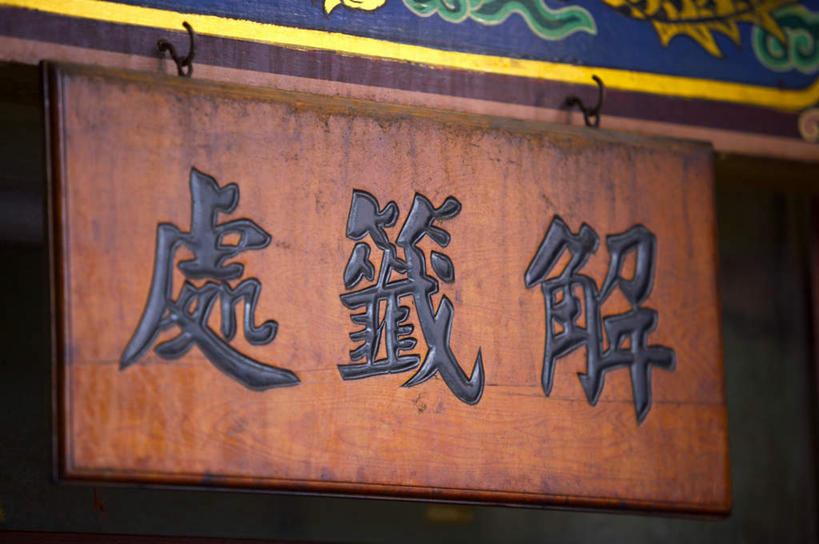 解籤處